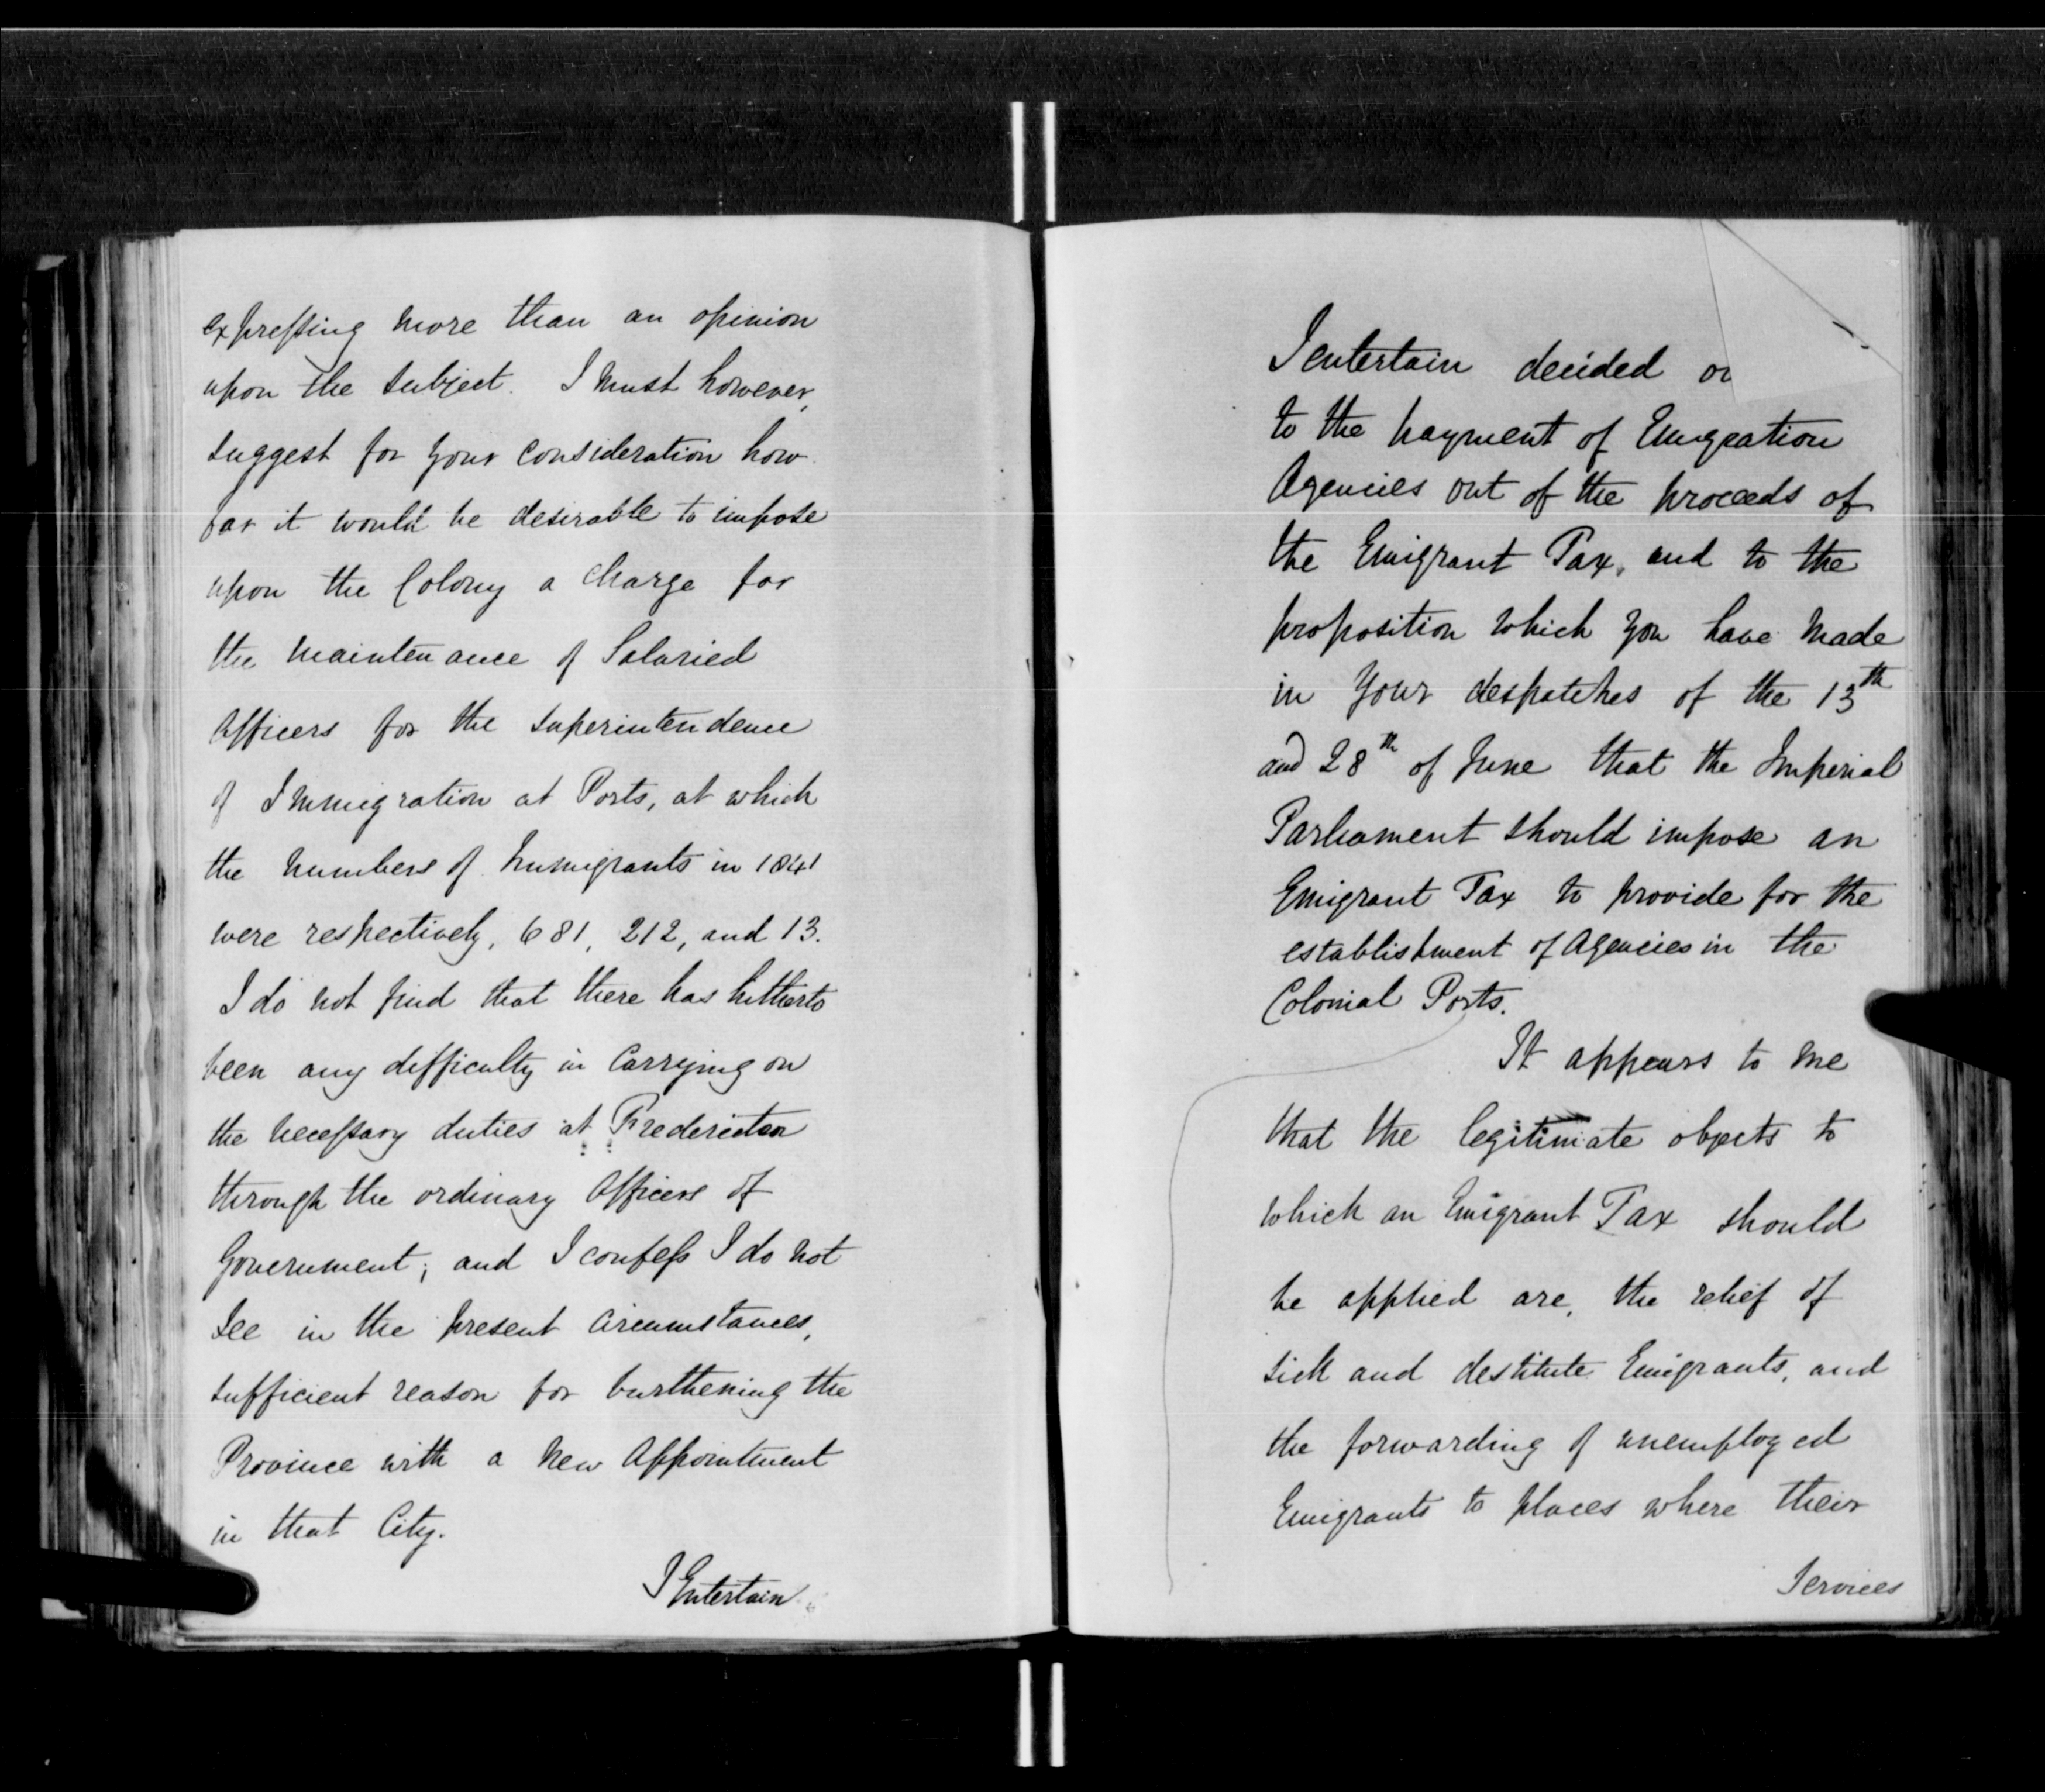 expressing more than an opinion
upon the subject. I must however,
suggest for your consideration how
far it would be desirable to impose
upon the Colony a charge for
the maintenance of Salaried
Officers for the superintendence
of Immigration at Ports, at which
the numbers of Immigrants in 1841
were respectively, 681, 212, and 13.
I do not find that there has hitherto
been any difficulty in carrying on
the necessary duties at Fredericton
through the ordinary Officers of
Government; and I confess I do not
see in the present circumstances,
sufficient reason for burthening the
Province with a new Appointment
in that City.
I Entertain
I entertain decided
to the payment of Emigration
Agencies out of the proceeds of
the Emigrant Tax, and to the
proposition which you have made
in your despatches of the 13th
and 28th of June that the Imperial
Parliament should impose an
Emigrant Tax to provide for the
establishment of Agencies in the
Colonial Ports.
It appears to me
that the legitimate objects to
which an Emigrant Tax should
be applied are, the relief of
sick and destitute Emigrants, and
the forwarding of unemployed
Emigrants to places where their
Services